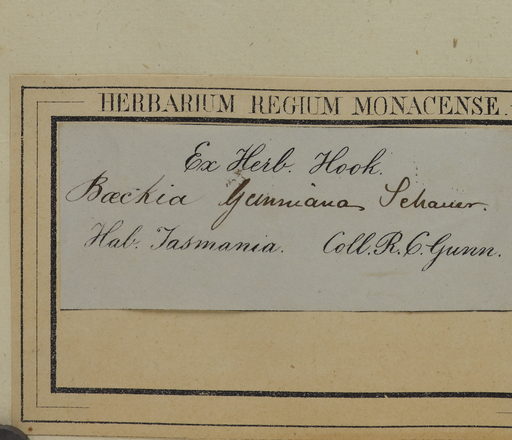 HERBARIUM REGIUM MONACENSE.
Ex Herb. Hook.
Bæckia Gunniana Schauer.
Hab. Tasmania. Coll. R. C. Gunn.